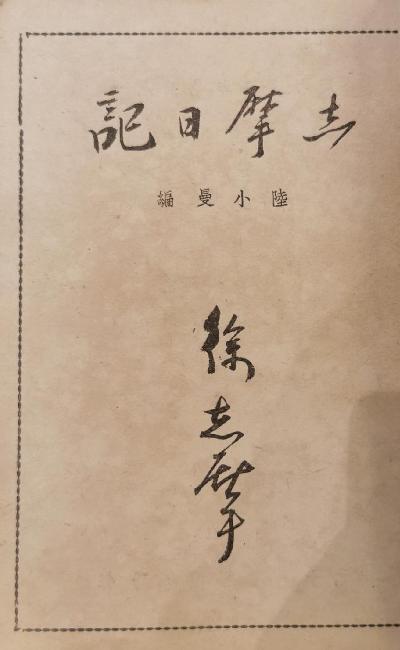 志摩日記
陸小曼編
徐志摩